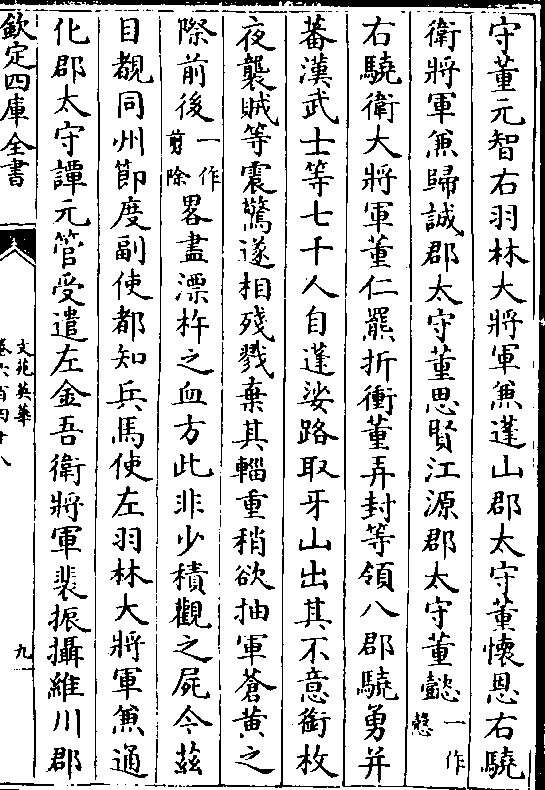 守董元智右羽林大將軍兼蓬山郡太守董懷恩右驍
衛將軍兼歸誠郡太守董思賢江源郡太守董懿一作慤
右驍衛大將軍董仁羆折衝董弄封等領八郡驍勇并
蕃漢武士等七千人自蓬娑路取牙山出其不意銜枚
夜襲賊等震驚遂相殘戮棄其輜重稍欲抽軍蒼黃之
際前後一作剪除畧盡漂杵之血方此非少積觀之屍今茲
目覩同州節度副使都知兵馬使左羽林大將軍兼通
化郡太守譚元管受遣左金吾衛將軍裴振攝維川郡
欽定四庫全書
文苑英華
卷六百四十八
九